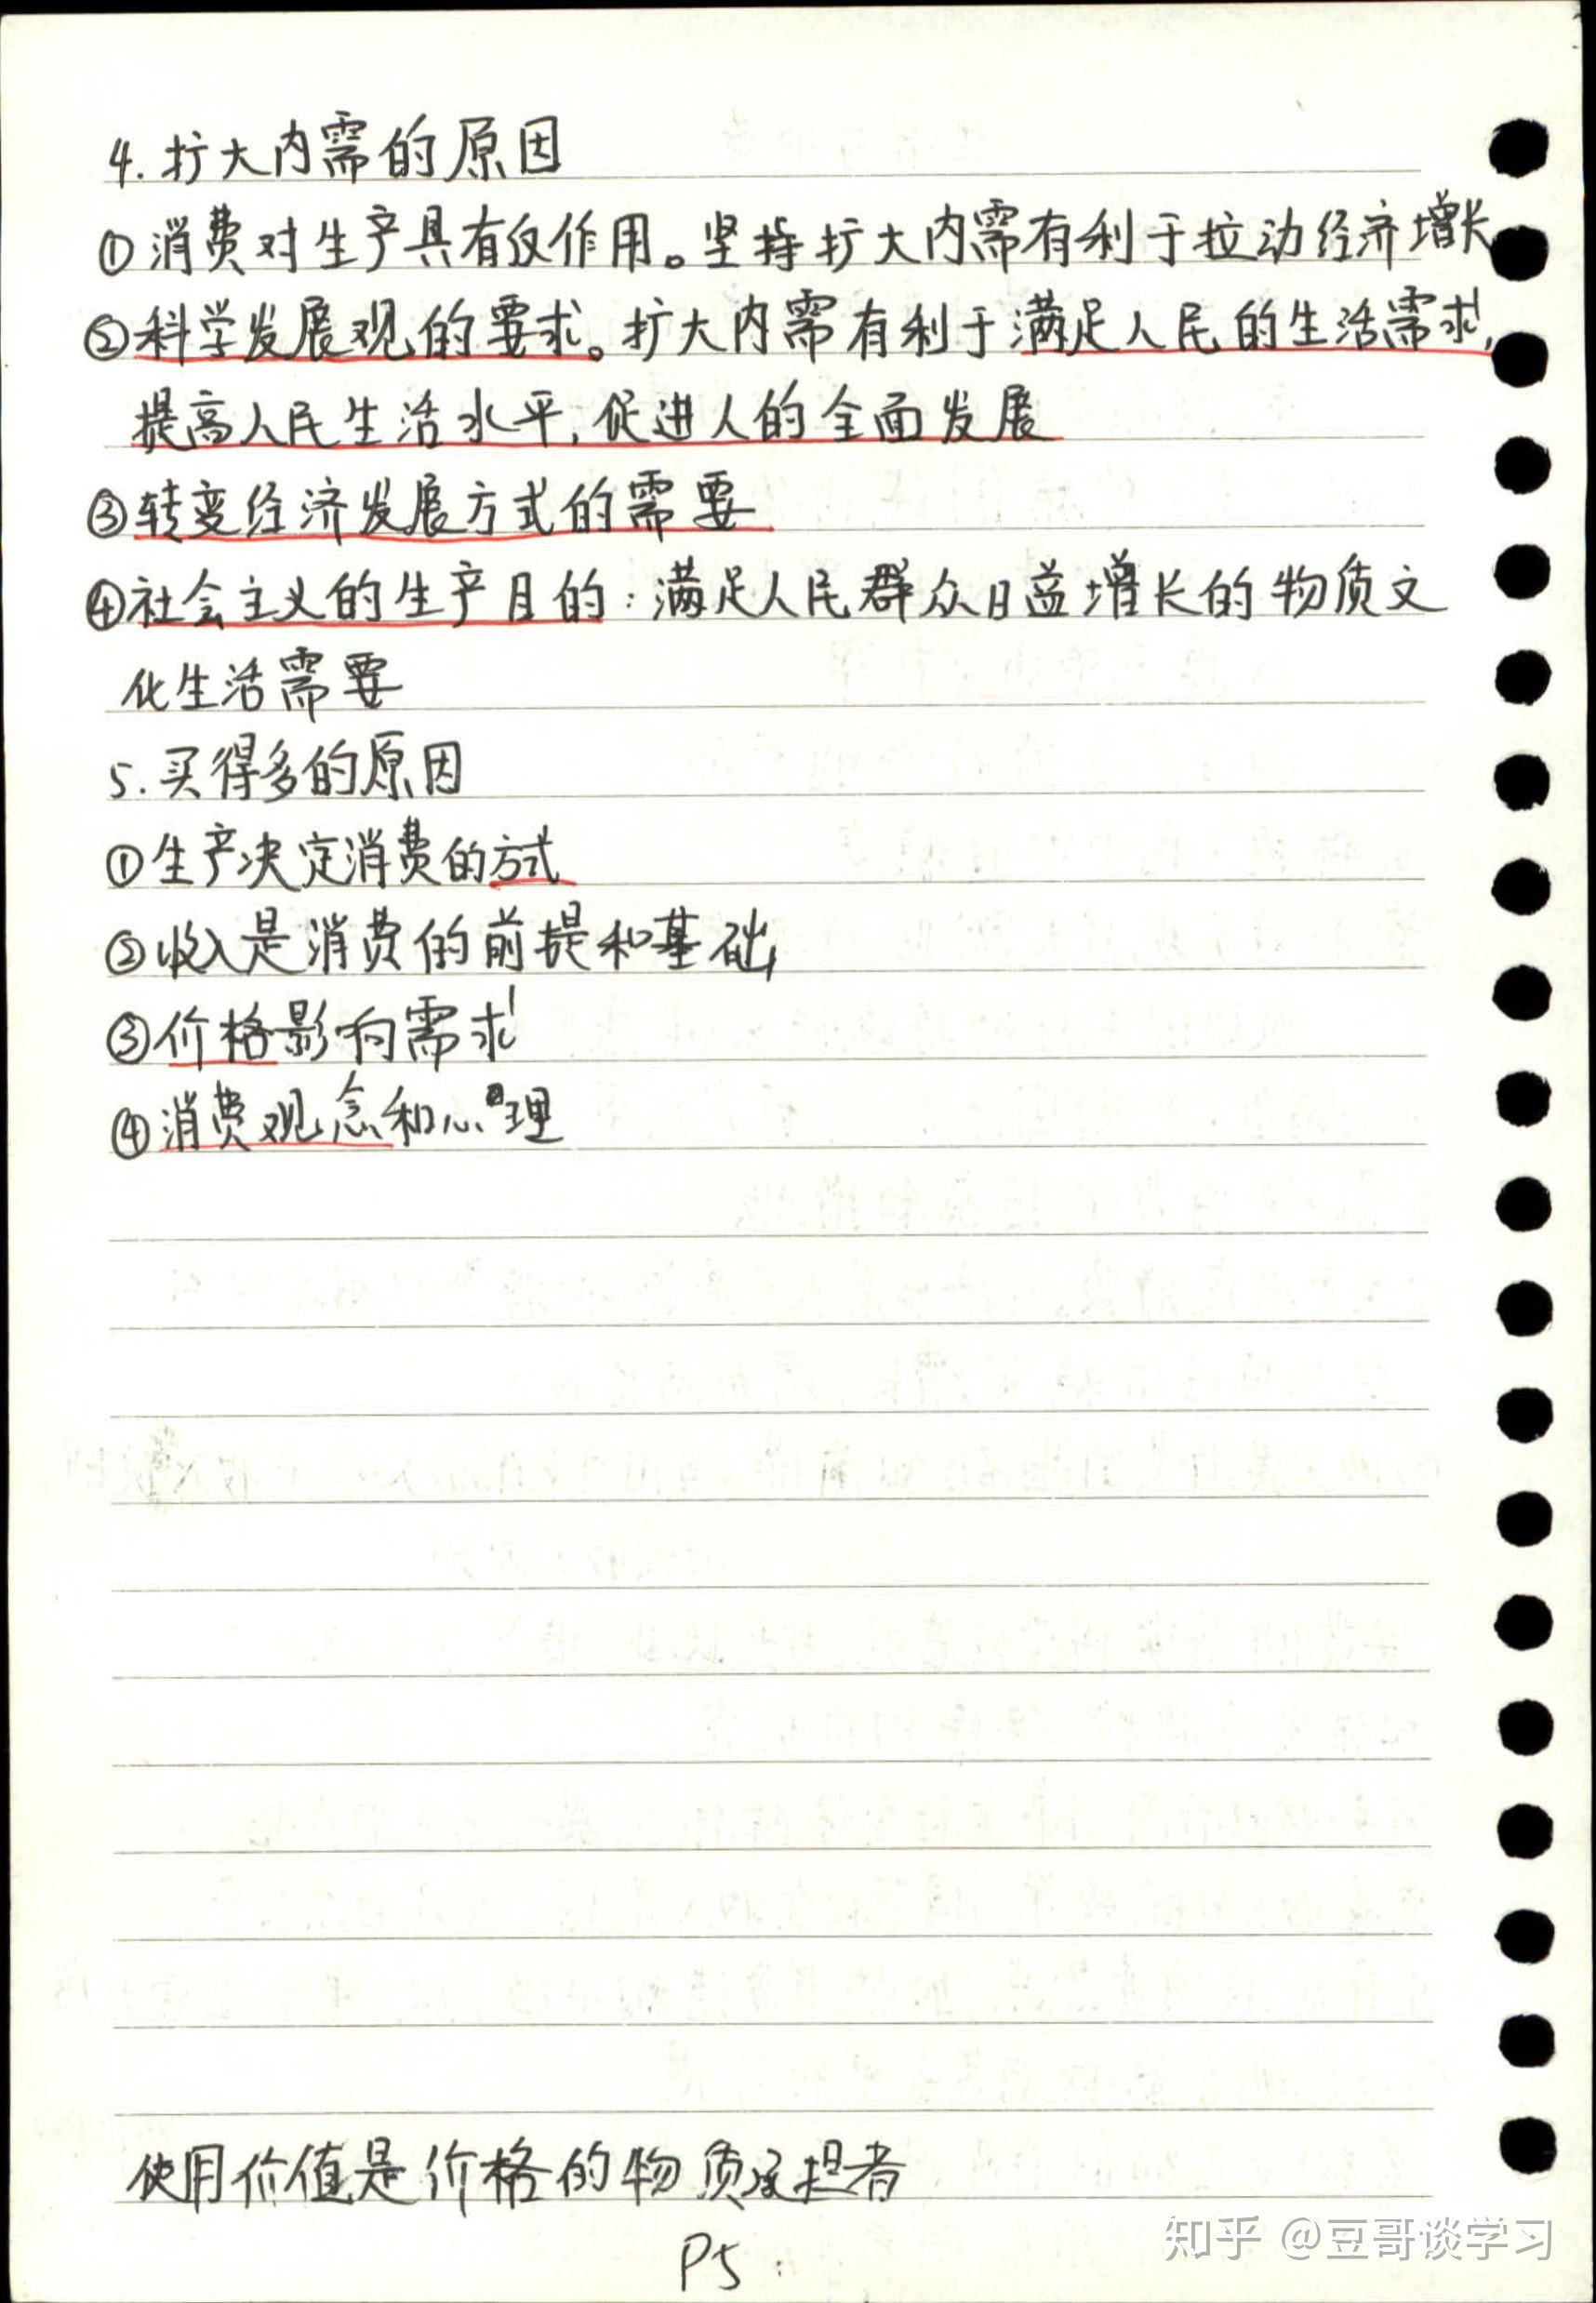 4. 扩大内需的原因
①消费对生产具有反作用。坚持扩大内需有利于拉动经济增长
②科学发展观的要求。扩大内需有利于满足人民的生活需求,
提高人民生活水平,促进人的全面发展
③转变经济发展方式的需要
④社会主义的生产目的:满足人民群众日益增长的物质文
化生活需要
5. 买得多的原因
①生产决定消费的方式
②收入是消费的前提和基础
③价格影响需求
④消费观念和心理
使用价值是价格的物质承担者
P5
知乎 @豆哥谈学习